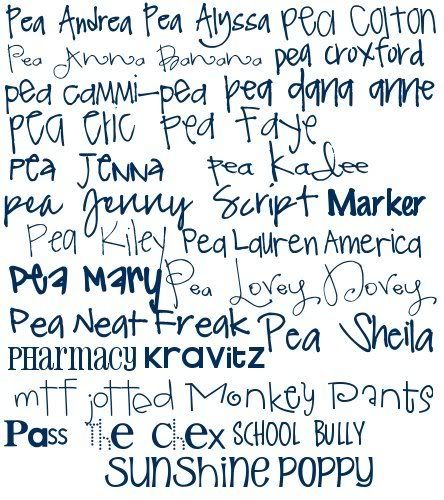 Pea Andrea Pea Alyssa pea Colton
Pea Anna Banana pea croxford
pea cammi-pea pea dana anne
pea eric pea Faye
pea Jenna pea Kadee
pea Jenny Script Marker
Pea Kiley Pea Lauren America
Pea Mary Pea Lovey Dovey
Pea Neat Freak Pea Sheila
PHarmacy Kravitz
mtf jotted Monkey Pants
Pass the chex SCHOOL BULLY
sunshine poppy